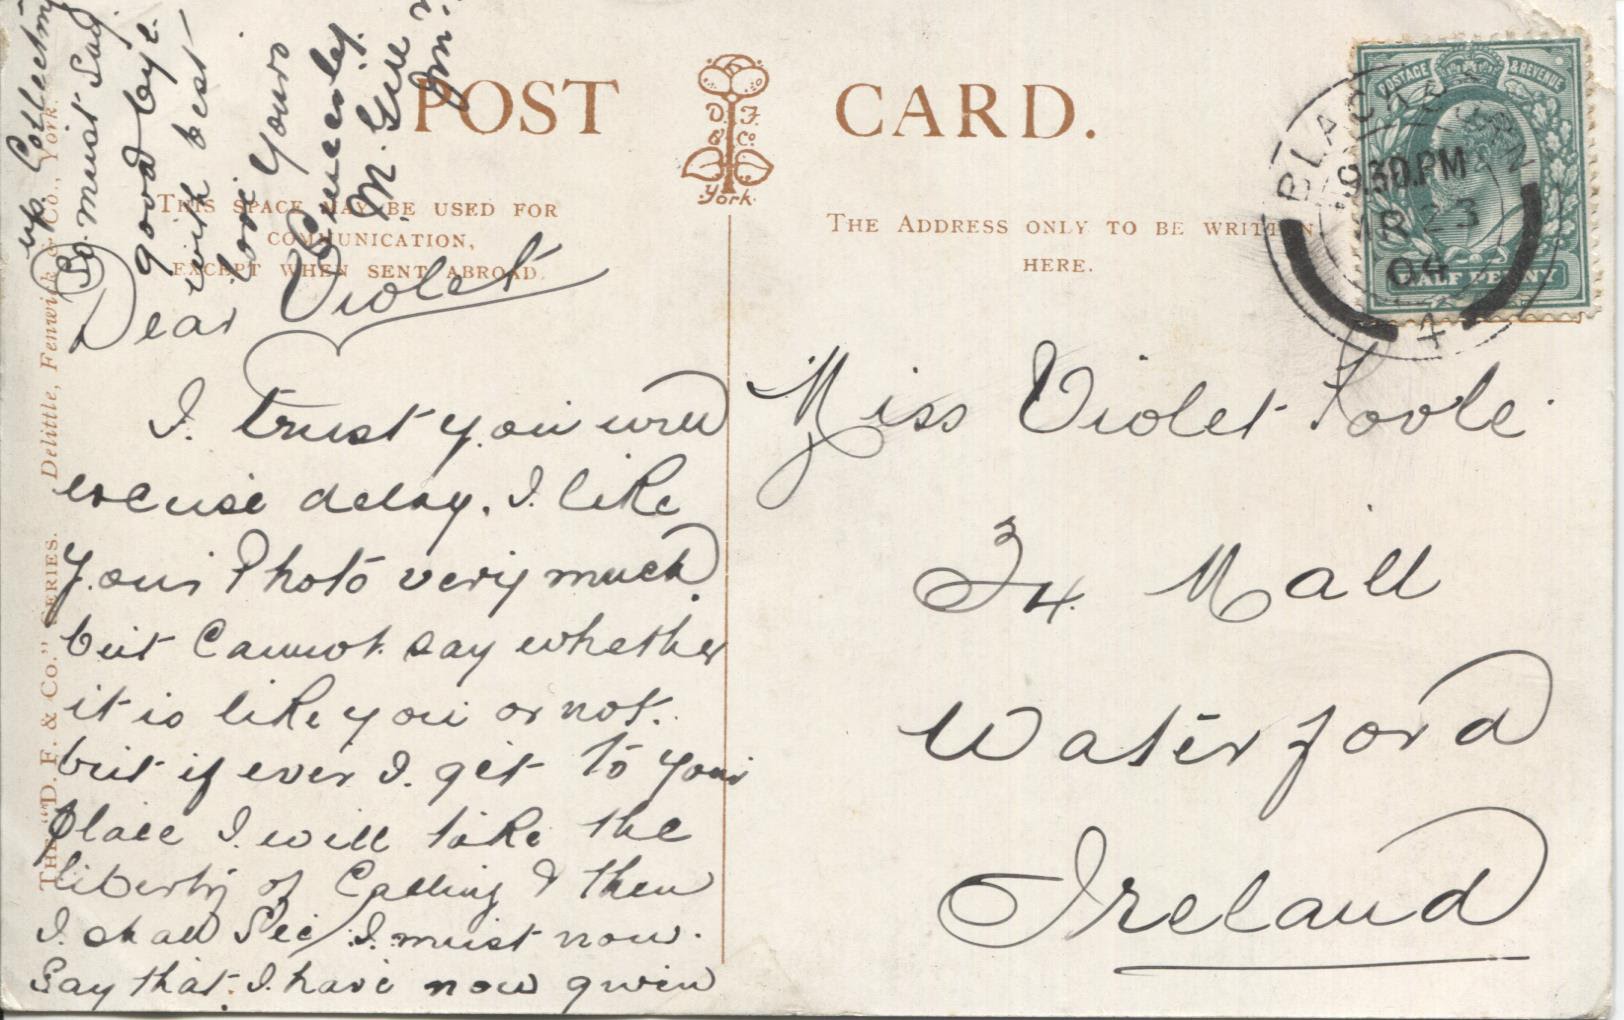 POST CARD.
D. F.
& Co.
York.
THIS SPACE MAY BE USED FOR
COMMUNICATION,
EXCEPT WHEN SENT ABROAD.
THE ADDRESS ONLY TO BE WRITTEN
HERE.
POSTAGE & REVENUE
HALF PENNY
BLACKBURN
9.30.PM
23
04
4
THE "D. F. & CO." SERIES. Delittle, Fenwick & Co., York.
Dear Violet
I. trust you will
excuse delay. I like
your Photo very much
but cannot say whether
it is like you or not.
but if ever I. get to your
place I. will take the
liberty of Calling & then
I. shall See/ I. must now.
Say that. I. have now given
up Collecting
So must Say
good bye.
with best
love Yours
Sincerely.
M. Gill
Miss Violet Toole
24 Mall
Waterford
Ireland